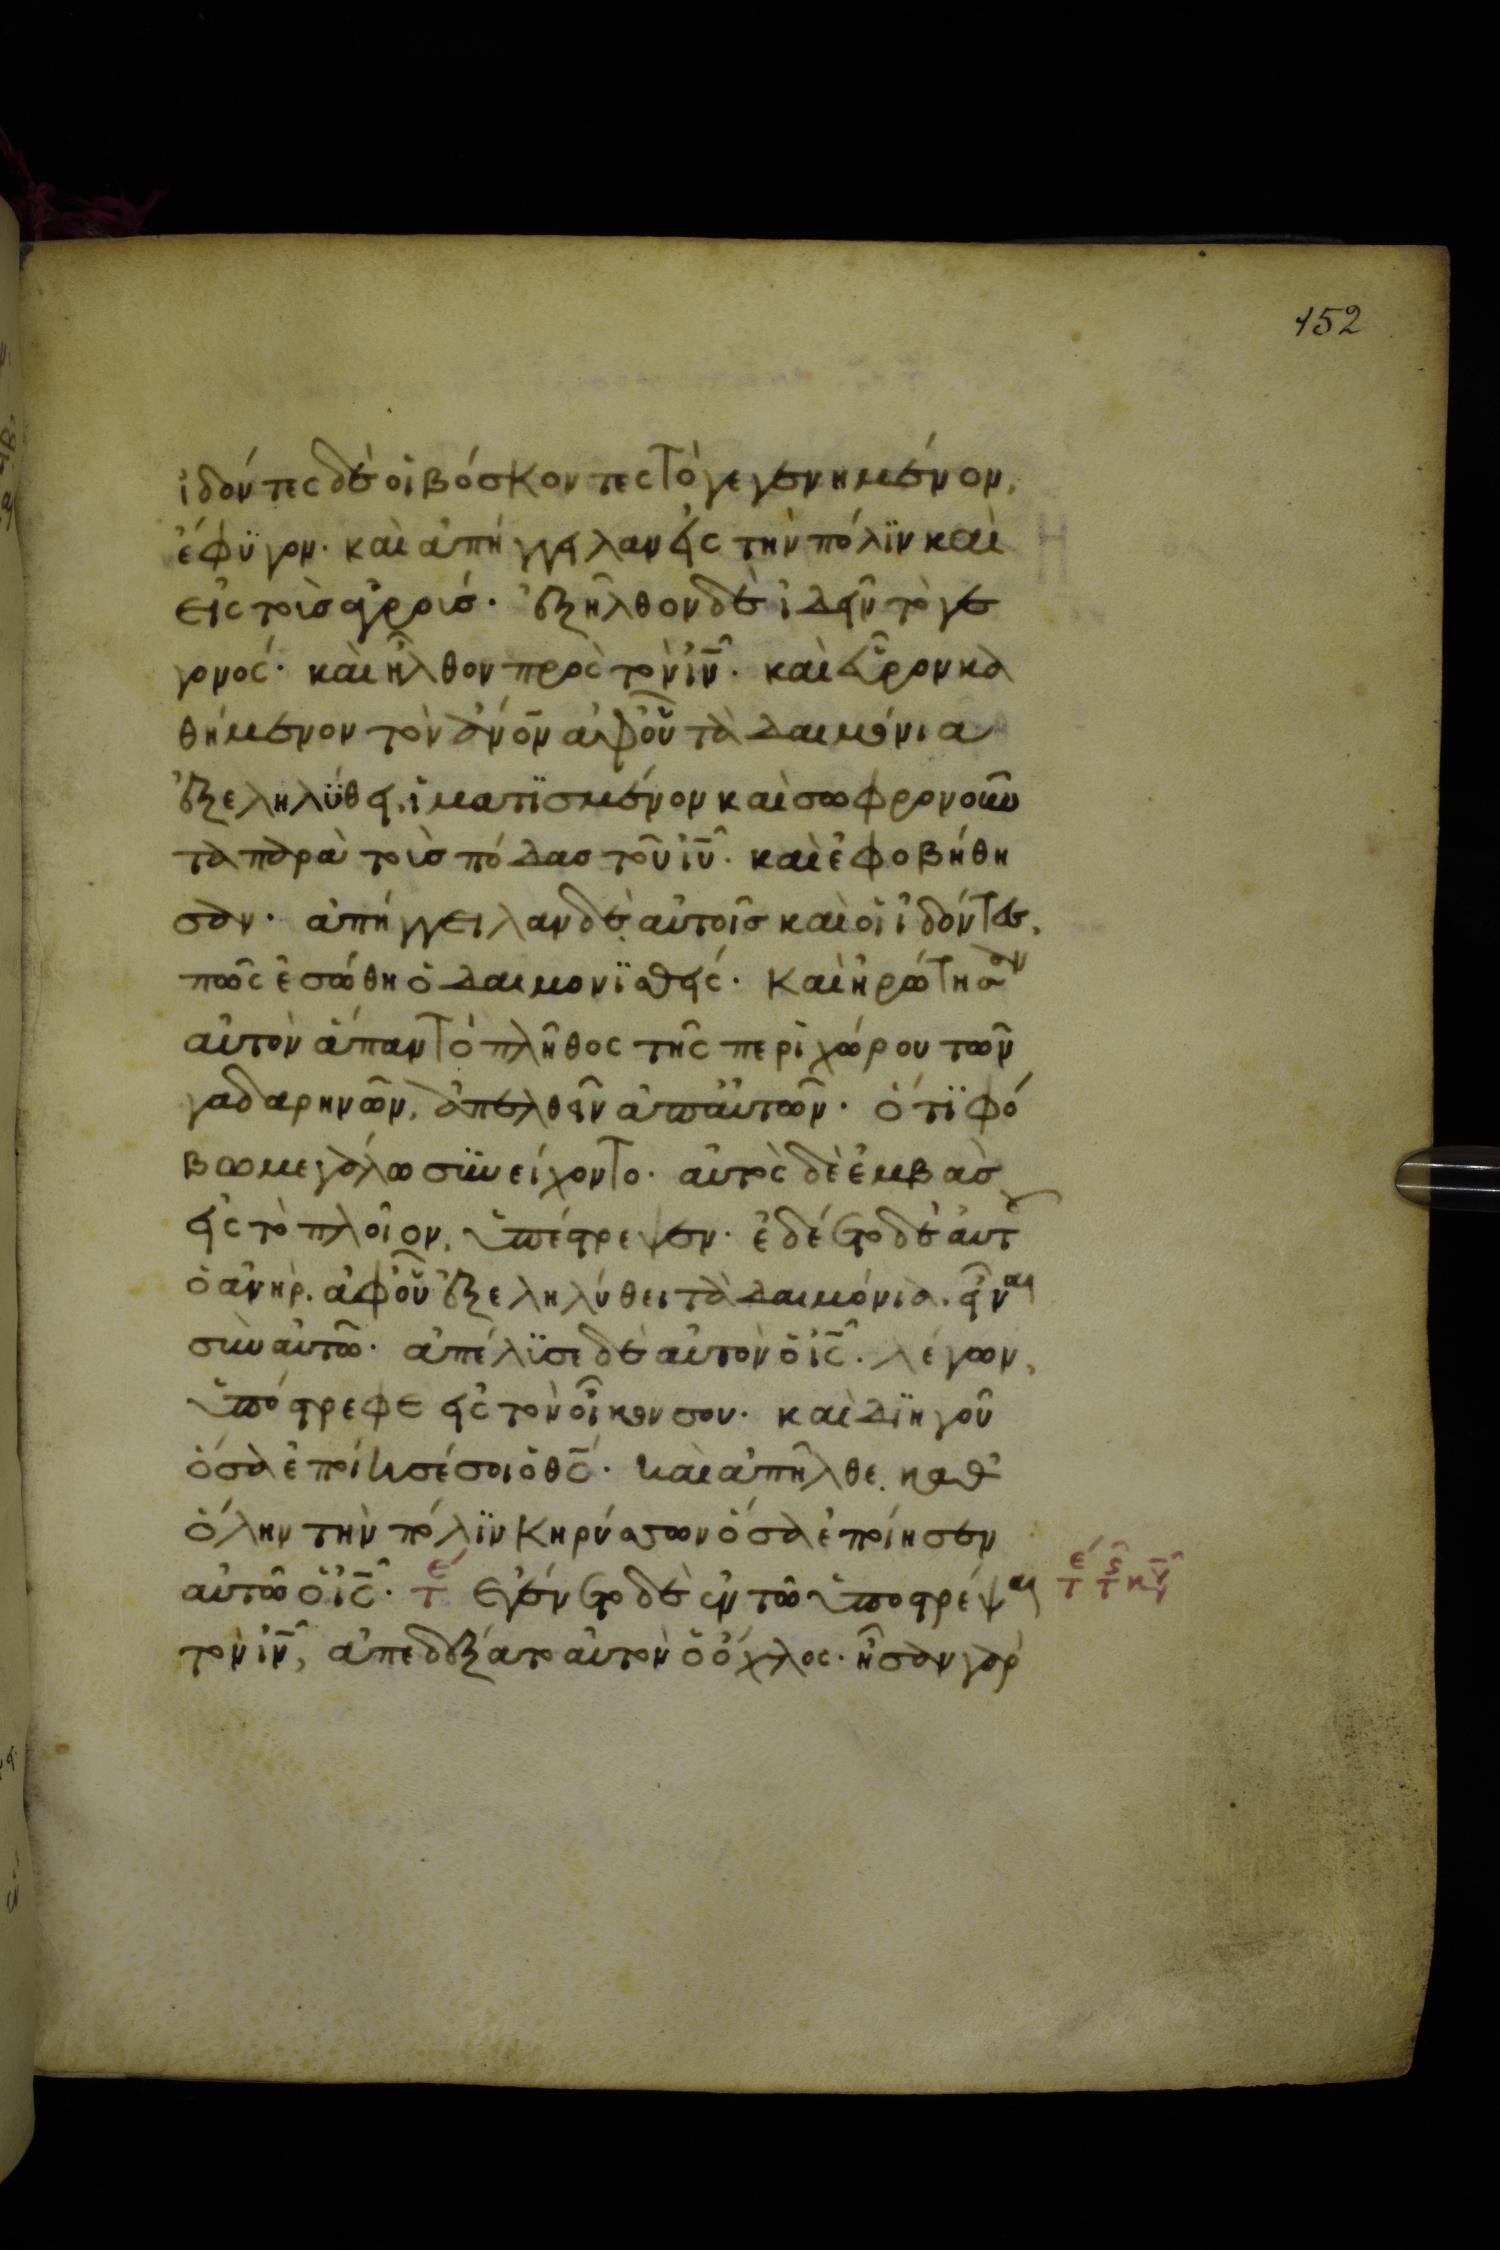 152
ἰδόντες δὲ οἱ βόσκοντες τὸ γεγενημένον,
ἔφϋγον· καὶ ἀπήγγειλαν εἰς τὴν πόλϊν καὶ
εἰς τοὺς ἀγρούς· ἐξῆλθον δὲ ἰδεῖν τὸ γε
γονός· καὶ ἦλθον πρὸς τὸν ἰν̅· καὶ εὗρον κα
θήμενον τὸν ἀν̅ον ἀφ' οὗ τὰ δαιμόνια
ἐξεληλύθει, ἱματϊσμένον καὶ σωφρονοῦν
τα παρὰ τοὺς πόδας τοῦ ἰυ̅· καὶ ἐφοβήθη
σαν· ἀπήγγειλαν δὲ αὐτοῖς καὶ οἱ ἰδόντες,
πῶς ἐσώθη ὁ δαιμονϊσθείς· Καὶ ἠρώτησαν
αὐτὸν ἅπαν τὸ πλῆθος τῆς περιχώρου τῶν
γαδαρηνῶν, ἀπελθεῖν ἀπ' αὐτῶν· ὅτϊ φό
βω μεγάλω συνείχοντο· αὐτὸς δὲ ἐμβὰς
εἰς τὸ πλοῖον, ὑπέστρεψεν· ἐδέετο δὲ αὐτοῦ
ὁ ἀνὴρ. ἀφ' οὗ ἐξεληλύθει τὰ δαιμόνια. εἶναι
σὺν αὐτῶ· ἀπέλϋσε δὲ αὐτὸν ὁ ἰς̅· λέγων,
ὑπόστρεφε εἰς τὸν οἶκον σου· καὶ διηγοῦ
ὅσα ἐποίησέ σοι ὁ θς̅· καὶ ἀπῆλθε. καθ'
ὅλην τὴν πόλϊν Κηρύσσων ὅσα ἐποίησεν
αὐτῶ ὁ ἰς̅· τε Εγένετο δὲ ἐν τῶ ὑποστρέψαι
τὸν ἰν̅, ἀπεδέξατο αὐτὸν ὁ ὄχλος· ἦσαν γὰρ